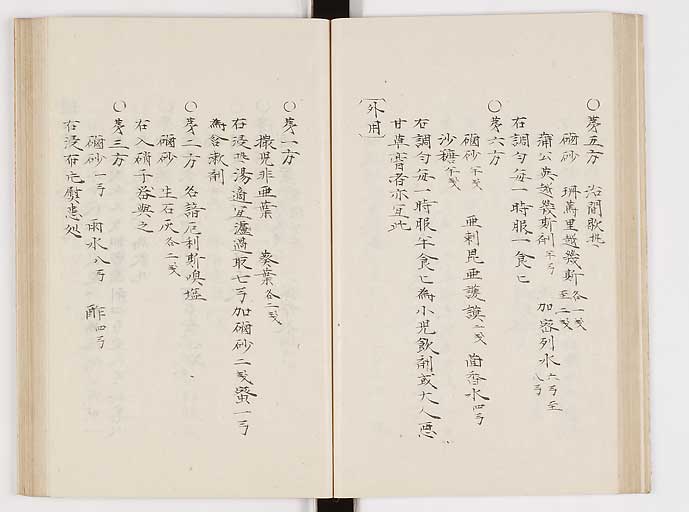 ○第五方 治間歇熱
硇砂 珊篤里越幾斯各一戔至二戔
蒲公英越幾斯剤半弓 加密列水六弓至八弓
右調勻每一時服一食匕
○第六方
硇砂半戔 亜剌毘亜護謨二戔 茴香水四弓
沙糖半戔
右調勻每一時服半食匕為小児飲剤或大人悪
甘草膏者亦宜此
外用
○第一方
撒児非亜葉 葵葉各二戔
右浸熱湯適宜濾過取七弓加硇砂二戔蜜一弓
為含漱剤
○第二方 名諳厄利斯嗅塩
硇砂 生石灰各二戔
右入硝子器與之
○第三方
硇砂一弓 雨水八弓 酢四弓
右浸布片慰患処